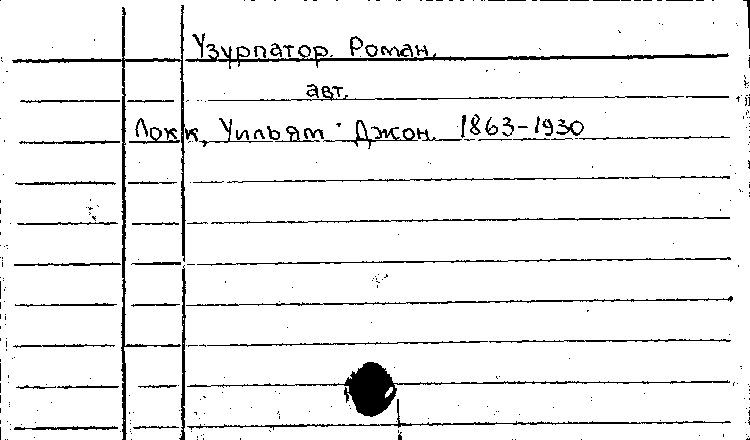 Узурпатор. Роман.
авт.
Локк, Уильям Джон. 1863-1930